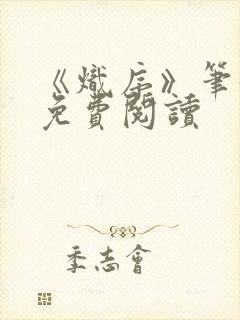 《熾帝》筆
免費閱讀
季志會